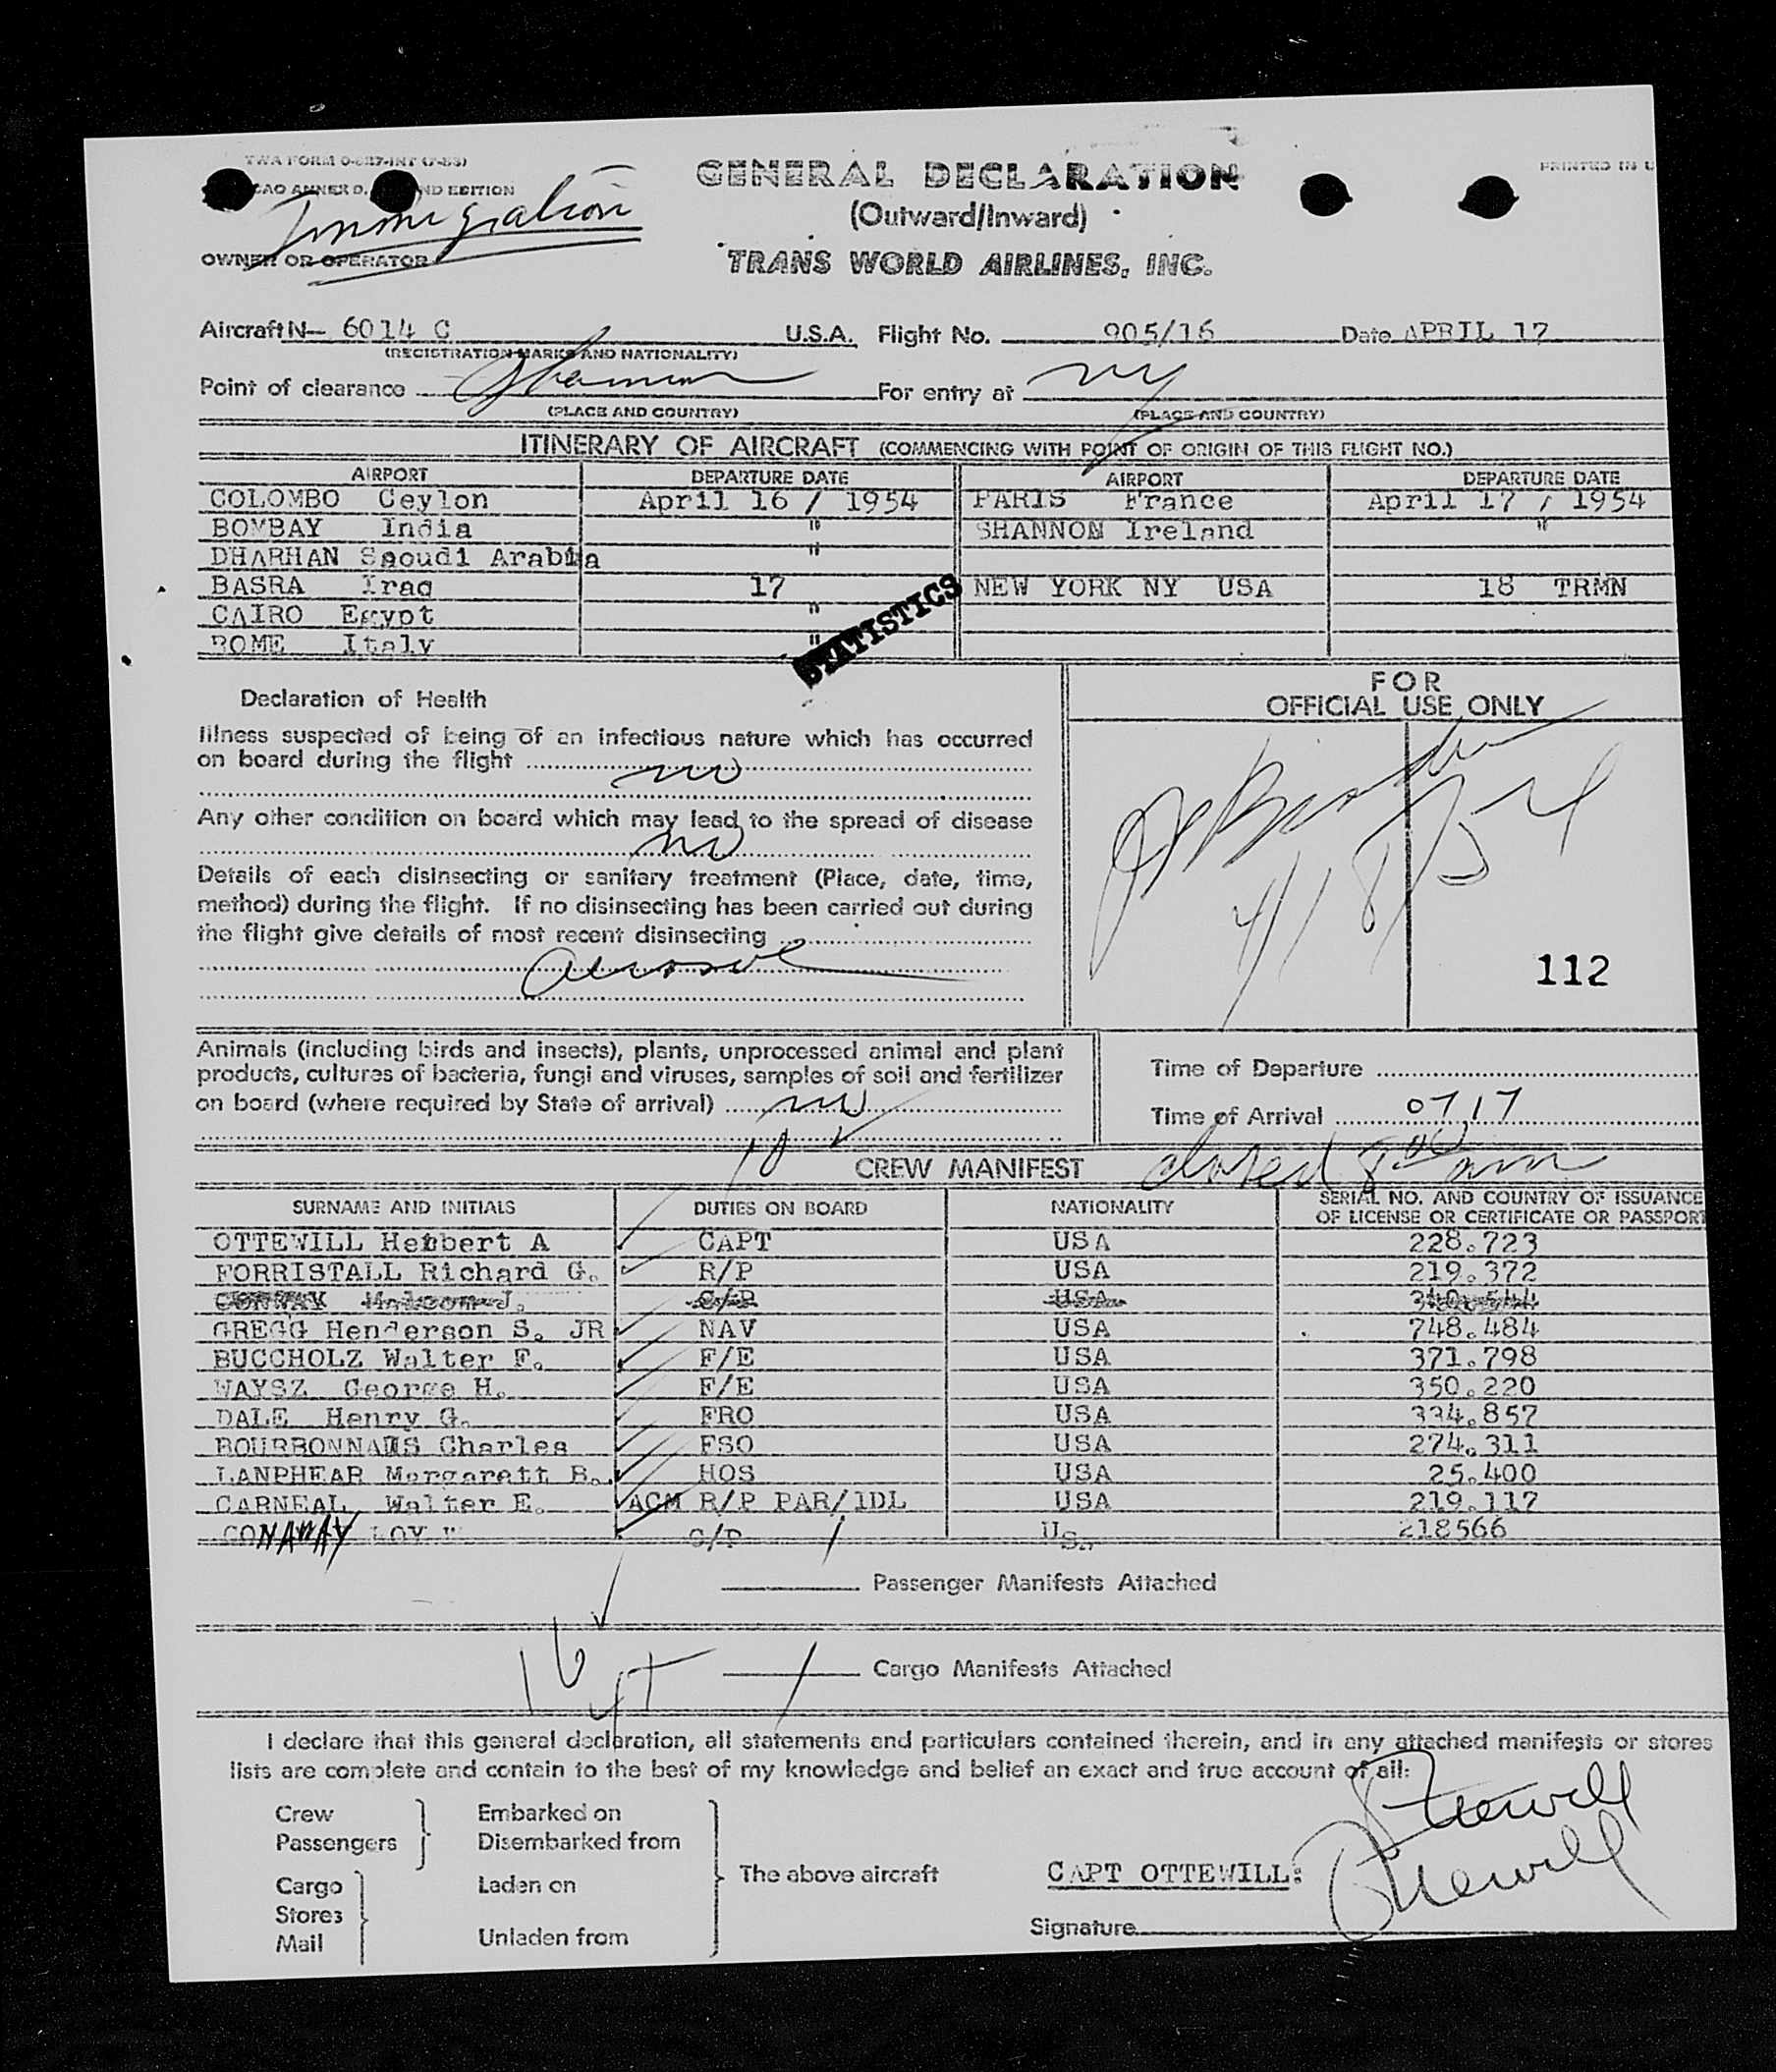 TWA FORM O-827-INT (7-53)
CAO ANNEX 9, ND EDITION
PRINTED IN U
GENERAL DECLARATION
(Outward/Inward)
Immigration
OWNER OR OPERATOR
TRANS WORLD AIRLINES, INC.
Aircraft N- 6014 C U.S.A. Flight No. 905/16 Date APRIL 17
(REGISTRATION MARKS AND NATIONALITY)
Point of clearance Shannon For entry at NY
(PLACE AND COUNTRY) (PLACE AND COUNTRY)
ITINERARY OF AIRCRAFT (COMMENCING WITH POINT OF ORIGIN OF THIS FLIGHT NO.)
AIRPORT DEPARTURE DATE AIRPORT DEPARTURE DATE
COLOMBO Ceylon April 16 / 1954 PARIS France April 17 / 1954
BOMBAY India " SHANNON Ireland "
DHARHAN Saoudi Arabia "
BASRA Iraq 17 NEW YORK NY USA 18 TRMN
CAIRO Egypt "
ROME Italy "
STATISTICS
Declaration of Health
FOR
OFFICIAL USE ONLY
Illness suspected of being of an infectious nature which has occurred
on board during the flight no
Any other condition on board which may lead to the spread of disease
no
Details of each disinsecting or sanitary treatment (Place, date, time,
method) during the flight. If no disinsecting has been carried out during
the flight give details of most recent disinsecting
aerosol
4/18/54
112
Animals (including birds and insects), plants, unprocessed animal and plant
products, cultures of bacteria, fungi and viruses, samples of soil and fertilizer
on board (where required by State of arrival) no
Time of Departure
Time of Arrival 0717
10
CREW MANIFEST closed 8 00 am
SURNAME AND INITIALS DUTIES ON BOARD NATIONALITY SERIAL NO. AND COUNTRY OF ISSUANCE
OF LICENSE OR CERTIFICATE OR PASSPORT
OTTEWILL Herbert A CAPT USA 228.723
FORRISTALL Richard G. R/P USA 219.372
CONWAY Malcom J. C/P USA 340.544
GREGG Henderson S. JR NAV USA 748.484
BUCCHOLZ Walter F. F/E USA 371.798
WAYSZ George H. F/E USA 350.220
DALE Henry G. FRO USA 334.857
BOURBONNAIS Charles FSO USA 274.311
LANPHEAR Margarett B. HOS USA 25.400
CARNEAL Walter E. ACM R/P PAR/IDL USA 219.117
CONAWAY LOY W C/P US. 218566
Passenger Manifests Attached
16
Cargo Manifests Attached
I declare that this general declaration, all statements and particulars contained therein, and in any attached manifests or stores
lists are complete and contain to the best of my knowledge and belief an exact and true account of all:
Crew
Passengers
Embarked on
Disembarked from
Cargo
Stores
Mail
Laden on
Unladen from
The above aircraft
CAPT OTTEWILL:
Ottewill
Ottewill
Signature